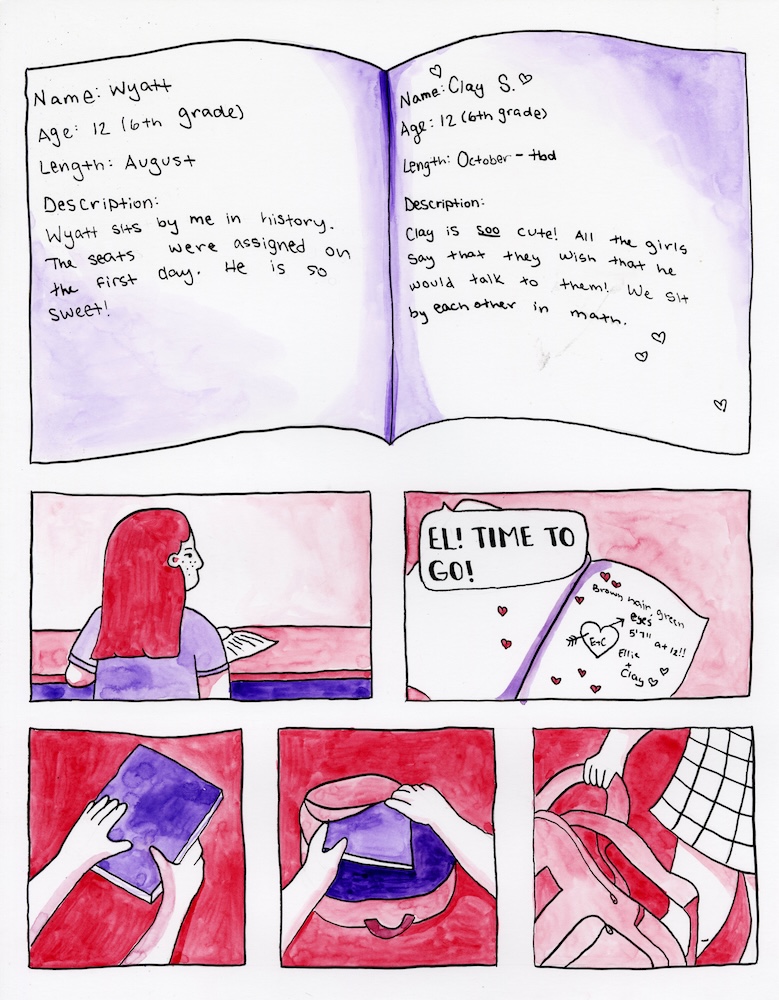 Name: Wyatt
Age: 12 (6th grade)
Length: August
Description:
Wyatt sits by me in history.
The seats were assigned on
the first day. He is so
sweet!
Name: Clay S.
Age: 12 (6th grade)
Length: October - tbd
Description:
Clay is soo cute! All the girls
say that they wish that he
would talk to them! We sit
by each other in math.
EL! TIME TO
GO!
Brown hair, green
eyes
5'7" at 12!!
E+C
Ellie
+
Clay